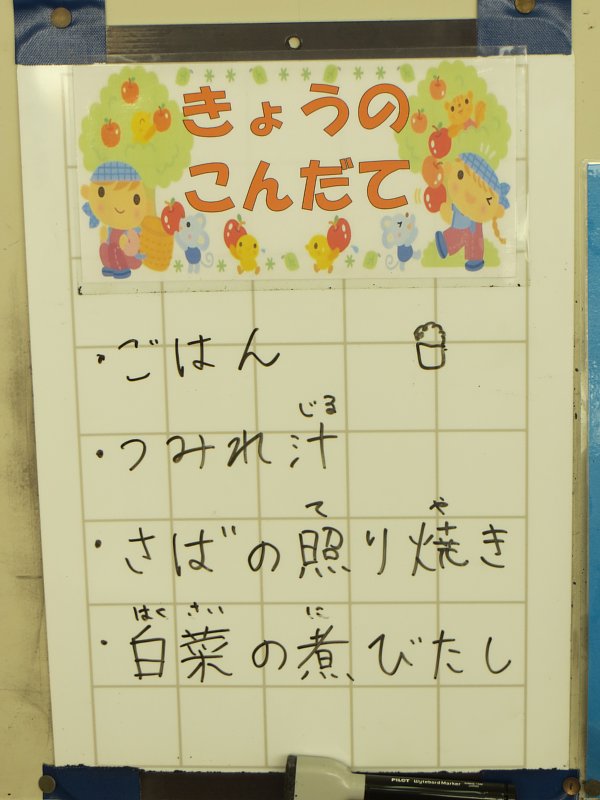 きょうの
こんだて
・ごはん
じる
・つみれ汁
て や
・さばの照り焼き
はくさい に
・白菜の煮びたし
PILOT Wyteboard Marker